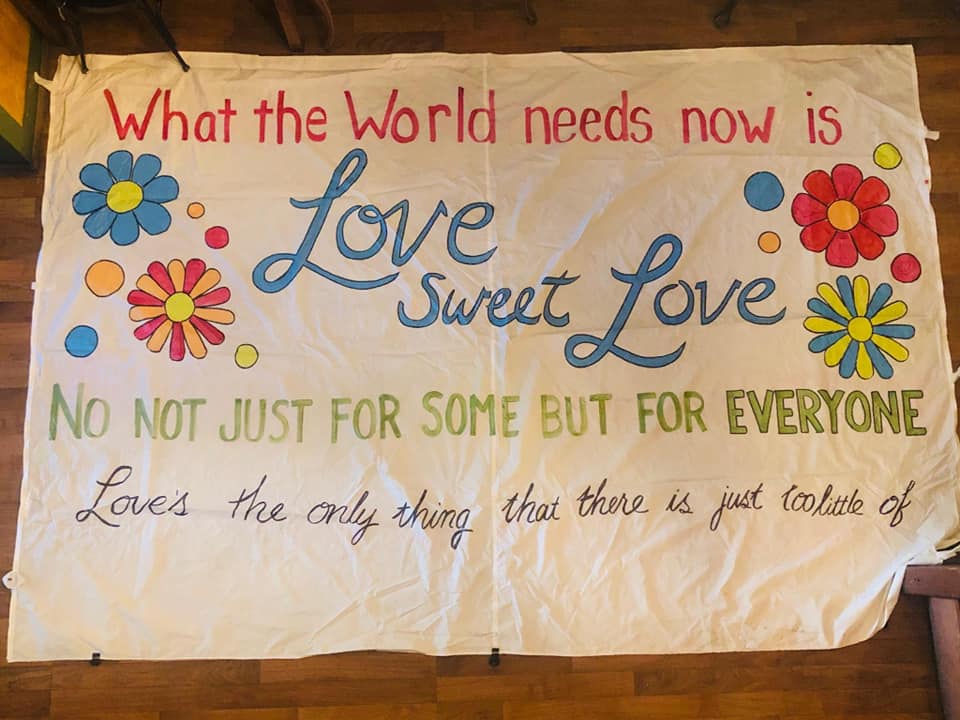 What the World needs now is
Love
Sweet Love
NO NOT JUST FOR SOME BUT FOR EVERYONE
Love's the only thing that there is just too little of